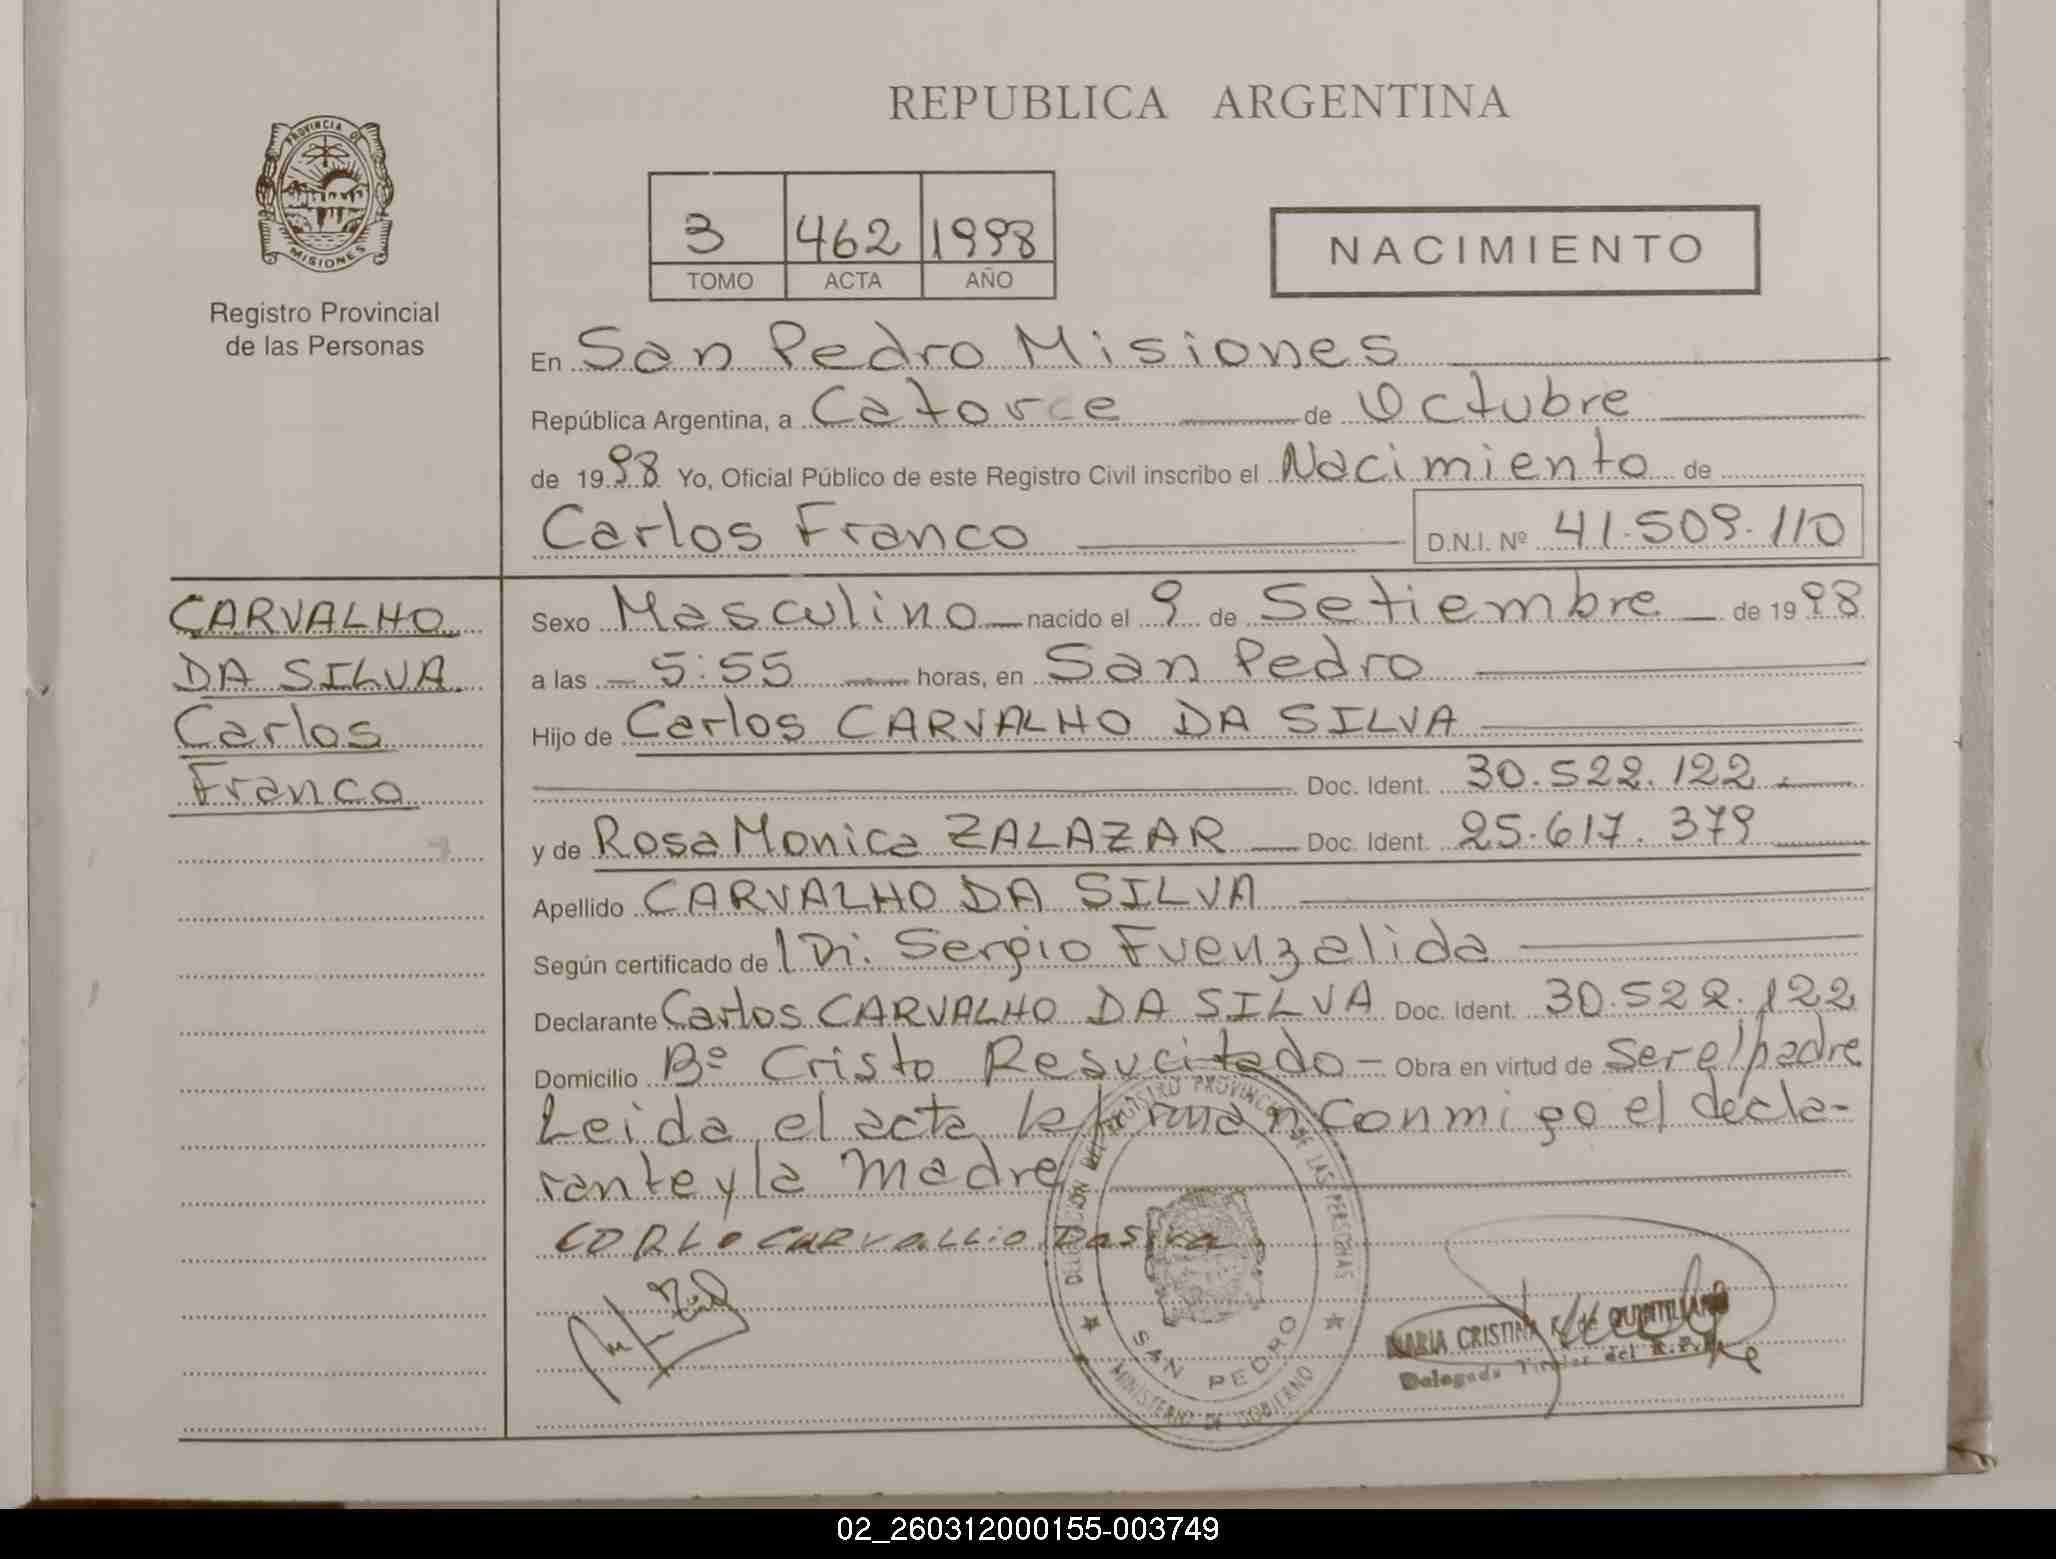 REPUBLICA ARGENTINA
PROVINCIA DE
MISIONES
Registro Provincial
de las Personas
3 462 1998
TOMO ACTA AÑO
NACIMIENTO
En San Pedro Misiones
República Argentina, a Catorce de Octubre
de 1998 Yo, Oficial Público de este Registro Civil inscribo el Nacimiento de
Carlos Franco D.N.I. Nº 41.509.110
CARVALHO
DA SILVA
Carlos
Franco
Sexo Masculino nacido el 9 de Setiembre de 1998
a las 5:55 horas, en San Pedro
Hijo de Carlos CARVALHO DA SILVA
Doc. Ident. 30.522.122.
y de Rosa Monica ZALAZAR Doc. Ident. 25.617.379
Apellido CARVALHO DA SILVA
Según certificado de Dr. Sergio Fuenzalida
Declarante Carlos CARVALHO DA SILVA Doc. Ident. 30.522.122
Domicilio Bº Cristo Resucitado - Obra en virtud de ser el padre
Leida el acta la firman conmigo el decla-
rante y la madre
DELEGACION DEL REGISTRO PROVINCIAL DE LAS PERSONAS
SAN PEDRO
MINISTERIO DE GOBIERNO
MARIA CRISTINA de QUINTILLANO
Delegada Titular del
02_260312000155-003749